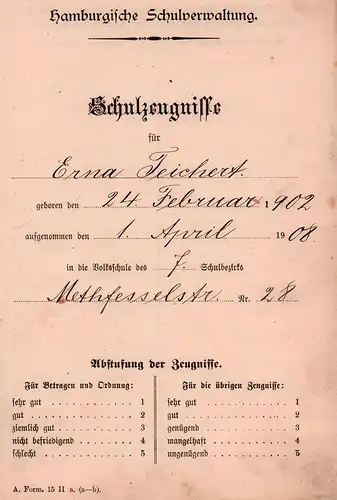 Hamburgische Schulverwaltung.
Schulzeugnisse
für
Erna Teichert.
geboren den 24. Februar 1902
aufgenommen den 1. April 1908.
in die Volksschule des 7. Schulbezirks
Methfesselstr. Nr. 28
Abstufung der Zeugnisse.
Für Betragen und Ordnung:
sehr gut . . . . 1
gut . . . . . 2
ziemlich gut . . . 3
nicht befriedigend . 4
schlecht . . . . 5
Für die übrigen Zeugnisse:
sehr gut . . . . 1
gut . . . . . 2
genügend . . . 3
mangelhaft . . . 4
ungenügend . . . 5
A. Form. 15 II a. (a—b).